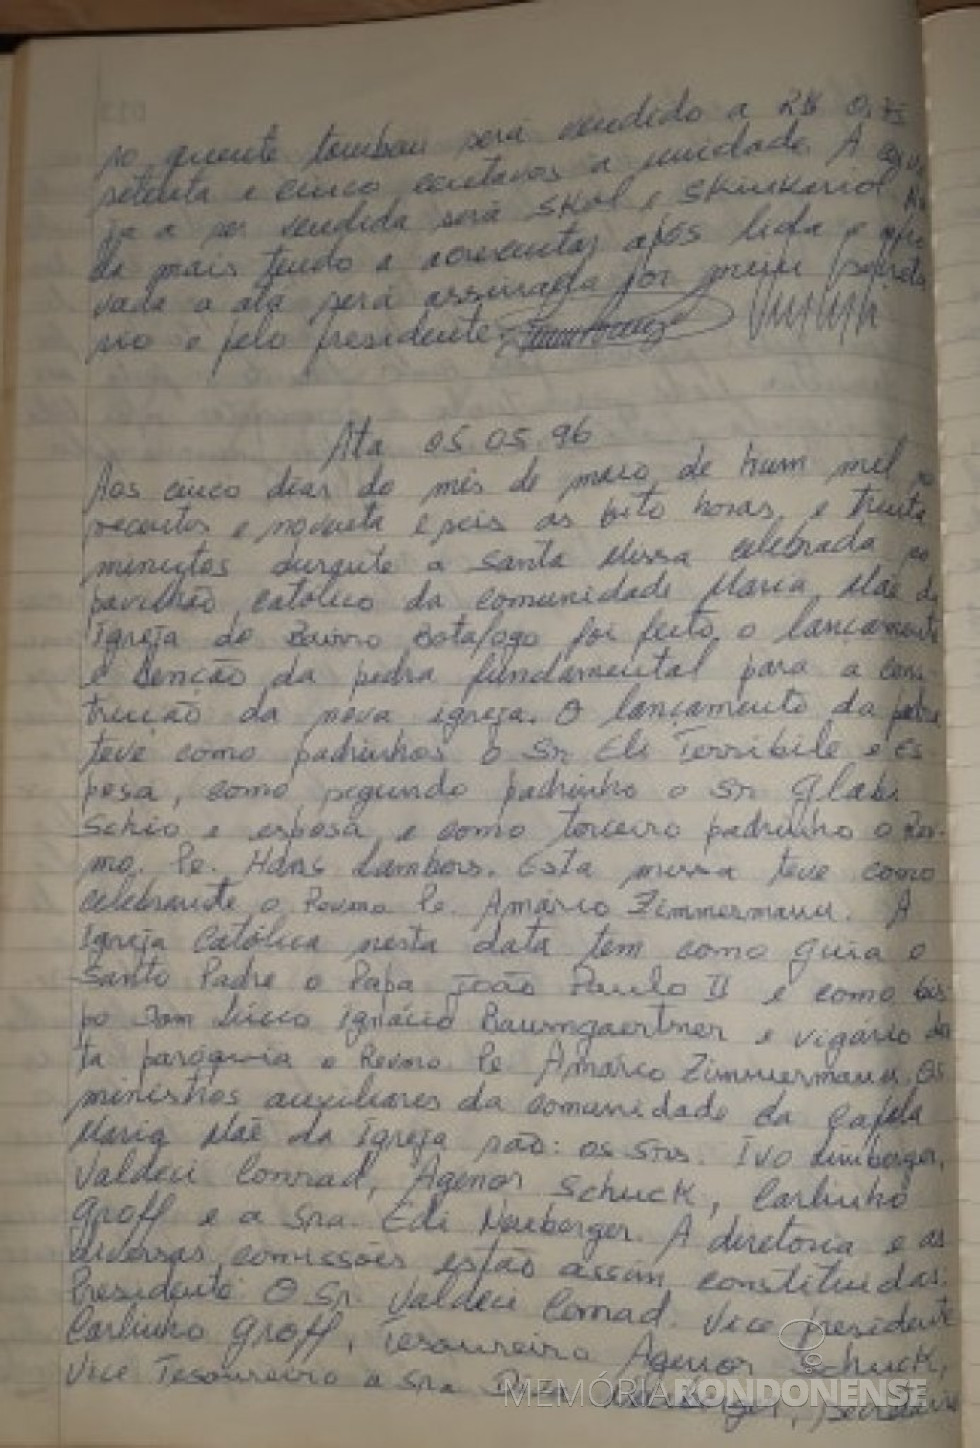 so quente tambem será vendido a R$ 0,75
setenta e cinco centavos a unidade. A cerve
ja a ser vendida será Skol e Skinkariol. Na
da mais tendo a acresentar após lida e apro
vada a ata será assinada por mim secreta
rio e pelo presidente
Ata 05.05.96
Aos cinco dias do mês de maio de hum mil no
vecentos e noventa e seis as oito horas e trinta
minutos durante a Santa Missa celebrada no
pavilhão católico da comunidade Maria Mãe da
Igreja do Bairro Botafogo foi feito o lançamento
e benção da pedra fundamental para a cons-
trução da nova igreja. O lançamento da pedra
teve como padrinhos o Sr. Eli Terribile e es
posa, como segundo padrinho o Sr. Glabi
Schio e esposa e como terceiro padrinho o Rev-
mo. Pe. Hans Lambors. Esta missa teve como
celebrante o Revmo Pe. Amárco Zimmermann. A
Igreja Católica nesta data tem como guia o
Santo Padre o Papa João Paulo II e como bis
po Dom Lúcio Ignácio Baumgaertner e vigário des
ta paróquia o Revmo. Pe. Amárco Zimmermann. Os
ministros auxiliares da comunidade da Capela
Maria Mãe da Igreja são: os Srs. Ivo Limberger,
Valdeci Conrad, Agenor Schuck, Carlinho
Groff e a Sra. Edi Neuberger. A diretoria e as
diversas comissões estão assim constituidas:
Presidente: O Sr. Valdeci Conrad. Vice presidente
Carlinho Groff, Tesoureiro Agenor Schuck,
Vice Tesoureiro a Sra secretário
MEMÓRIARONDONENSE